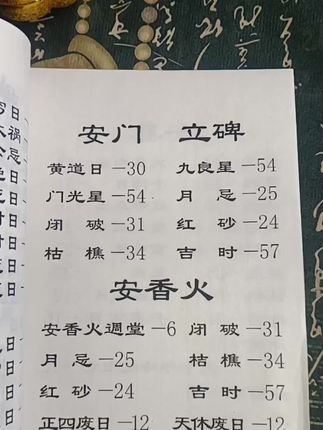 安门 立碑
黄道日—30 九良星—54
门光星—54 月忌—25
闭破—31 红砂—24
枯樵—34 吉时—57
安香火
安香火週堂—6 闭破—31
月忌—25 枯樵—34
红砂—24 吉时—57
正四废日—12 天休废日—12